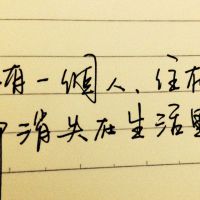 有一個人,住在
消失在生活